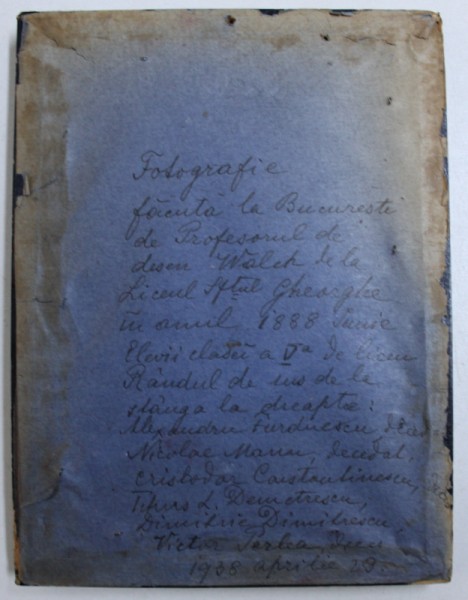 Fotografie
făcută la Bucureşti
de Profesorul de
desen Walch de la
Liceul Sftul Gheorghe
în anul 1888 Iunie
Elevii clasei a Va de liceu
Rândul de jos de la
stânga la dreapta:
Alexandru
Nicolae Marin, decedat,
Cristodor Constantinescu,
L. Demetrescu,
Dimitrie Dimitrescu,
Victor
1938 aprilie 23.